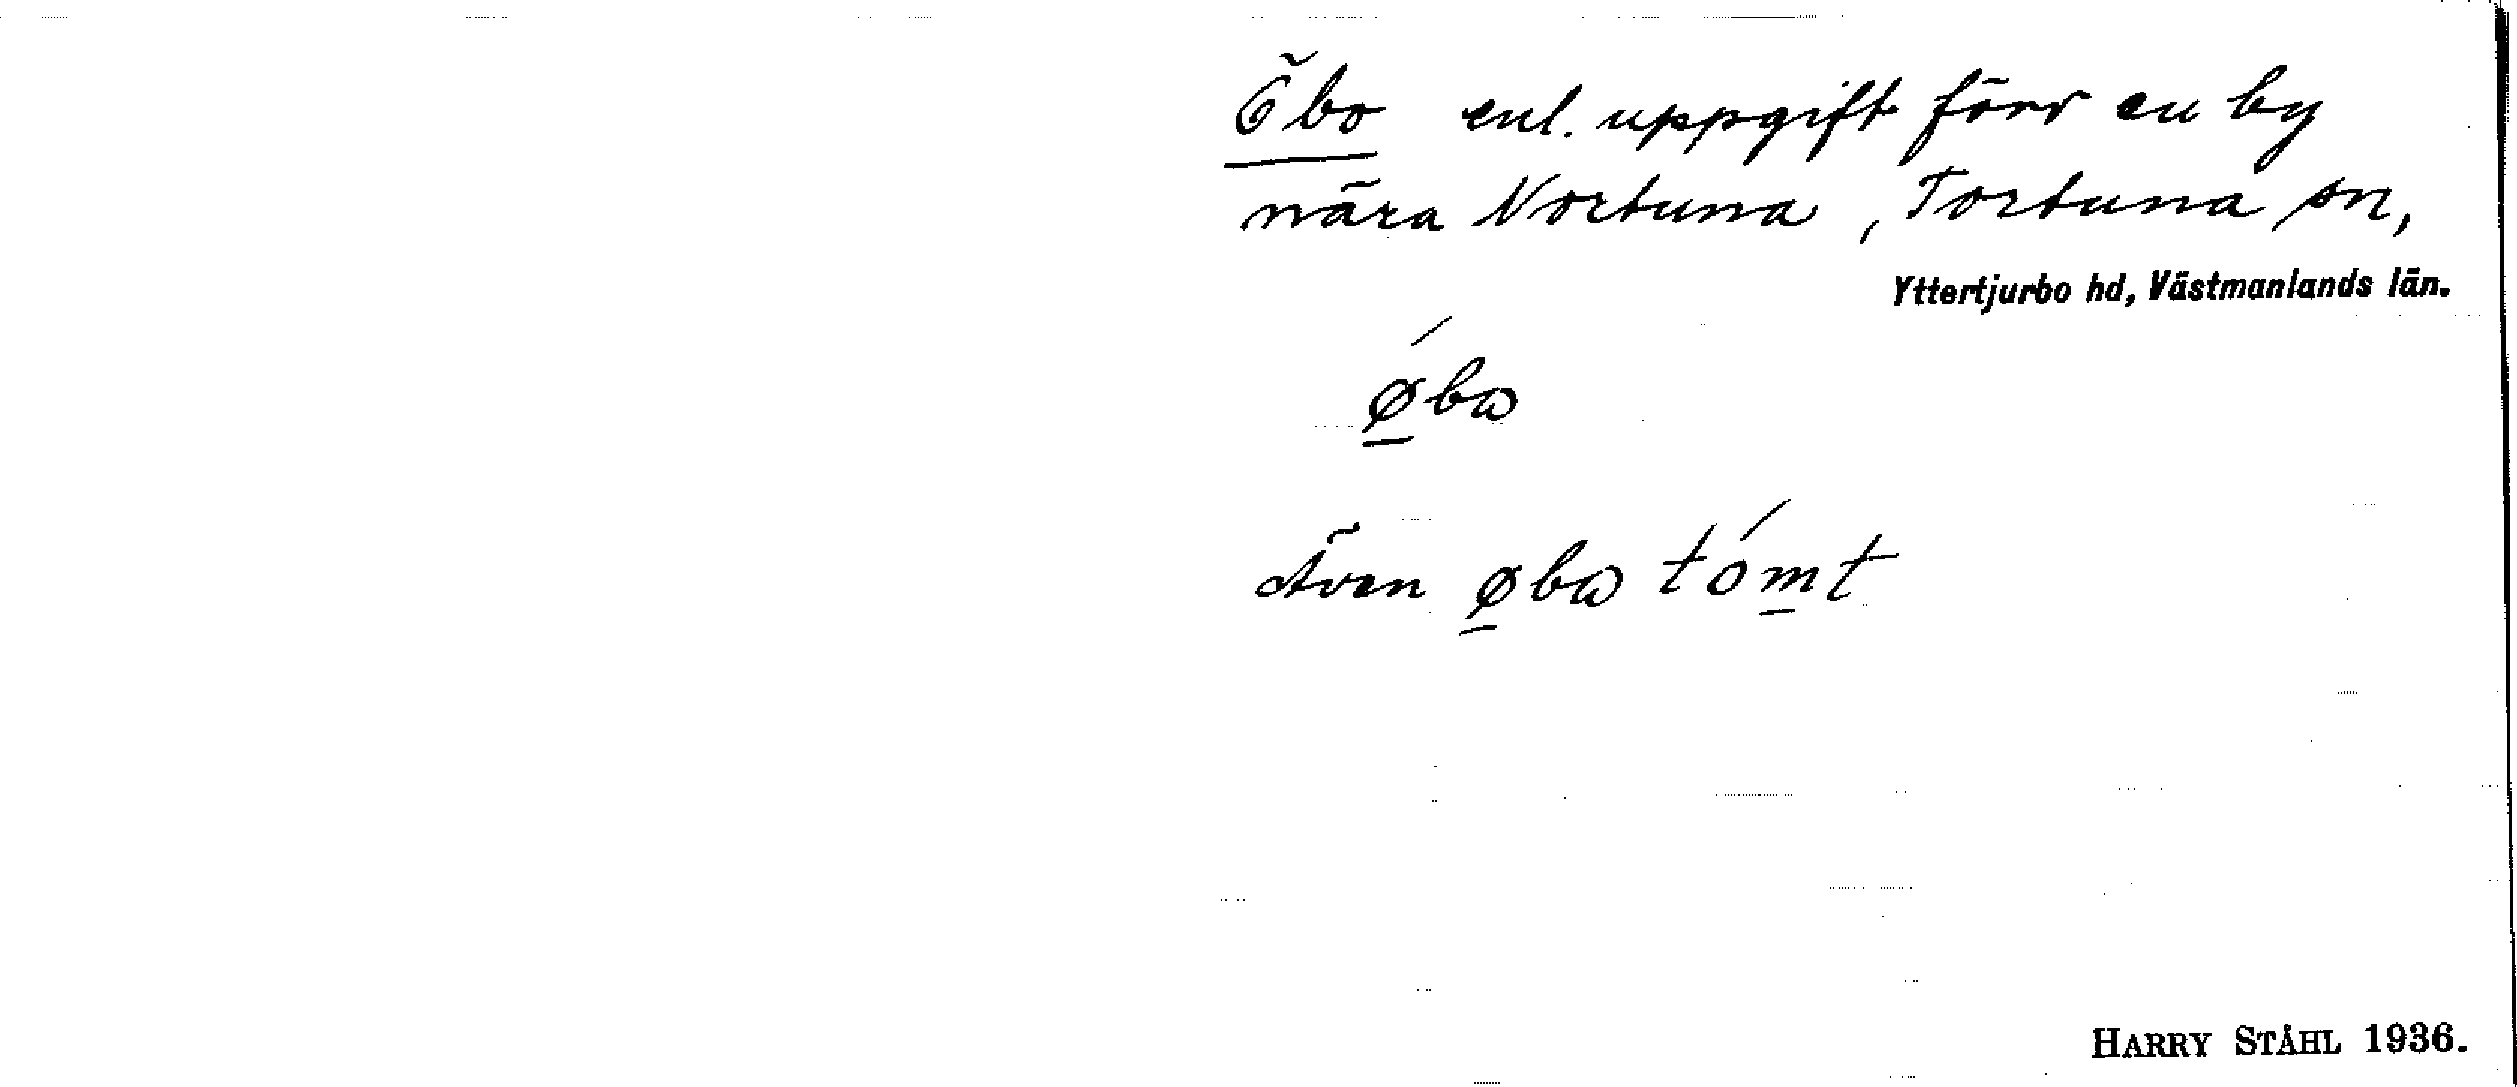 Öbo enl. uppgift förr en by
nära Nortuna, Tortuna sn,
Yttertjurbo hd, Västmanlands län.
ǿ̠bɷ
Även ø̠bɷ tóm̠t
HARRY STÅHL 1936.